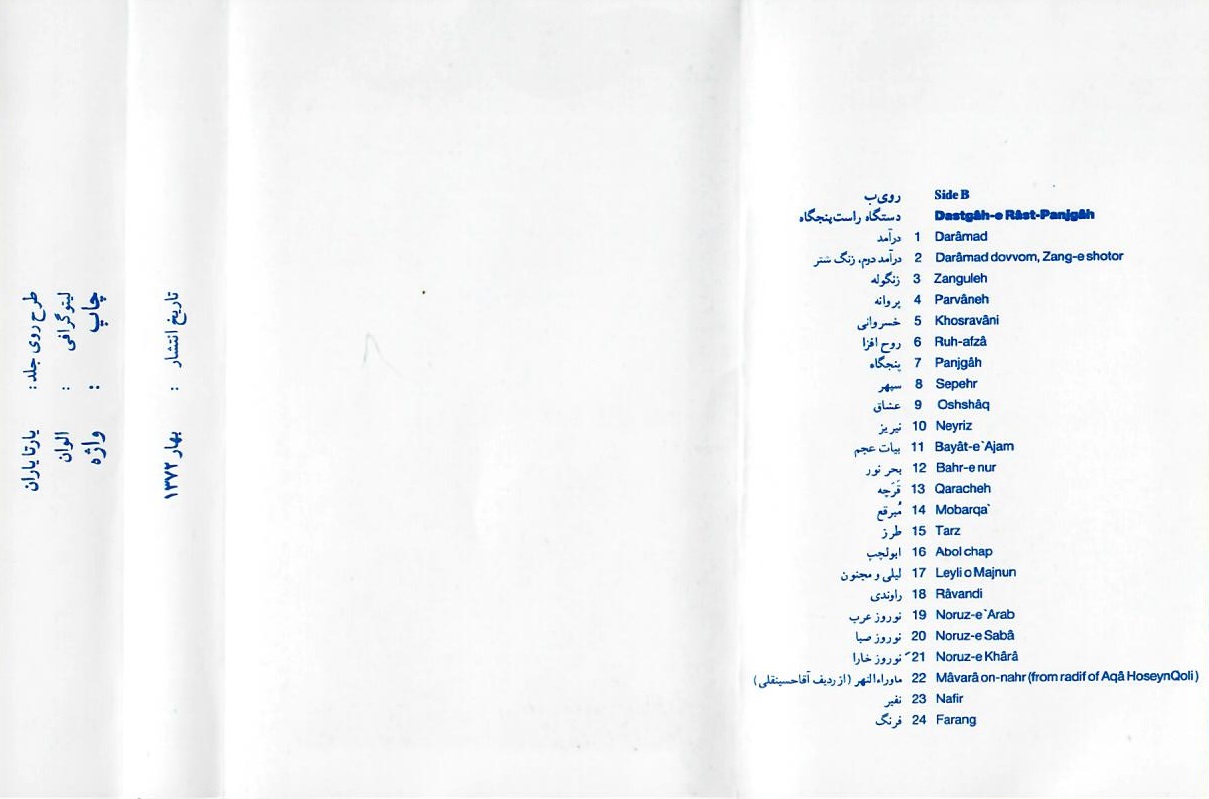 طرح روی جلد : پارتا یاران
لیتوگرافی : الوان
چاپ : واژه
تاریخ انتشار : بهار ۱۳۷۲
روی ب Side B
دستگاه راست‌پنجگاه Dastgâh-e Râst-Panjgâh
درآمد 1 Darâmad
درآمد دوم، زنگ شتر 2 Darâmad dovvom, Zang-e shotor
زنگوله 3 Zanguleh
پروانه 4 Parvâneh
خسروانی 5 Khosravâni
روح افزا 6 Ruh-afzâ
پنجگاه 7 Panjgâh
سپهر 8 Sepehr
عشاق 9 Oshshâq
نیریز 10 Neyriz
بیات عجم 11 Bayât-e`Ajam
بحر نور 12 Bahr-e nur
قَرَچه 13 Qaracheh
مُبرقع 14 Mobarqa`
طرز 15 Tarz
ابولچپ 16 Abol chap
لیلی و مجنون 17 Leyli o Majnun
راوندی 18 Râvandi
نوروز عرب 19 Noruz-e`Arab
نوروز صبا 20 Noruz-e Sabâ
نوروز خارا 21 Noruz-e Khârâ
ماوراءالنهر (از ردیف آقاحسینقلی) 22 Mâvarâ on-nahr (from radif of Aqâ HoseynQoli)
نفیر 23 Nafir
فرنگ 24 Farang